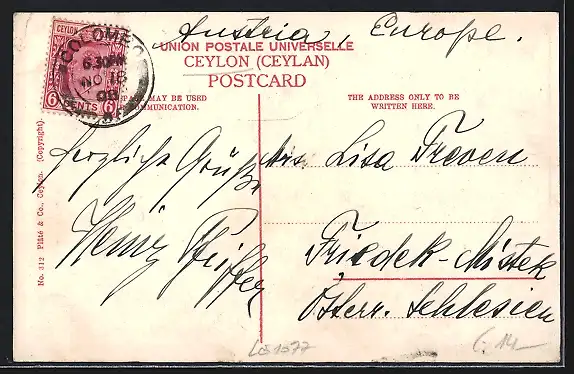 Austria, Europe.
UNION POSTALE UNIVERSELLE
CEYLON (CEYLAN)
POSTCARD
CEYLON
6 CENTS 6
COLOMBO
6.30PM
NO 18
MAY BE USED
COMMUNICATION.
THE ADDRESS ONLY TO BE
WRITTEN HERE.
herzliche Grüße
Heinz
Mrs. Lisa Treven
Friedek-Mistek
Österr. Schlesien
No. 312 Plâté & Co., Ceylon. (Copyright).
LG1577
14-